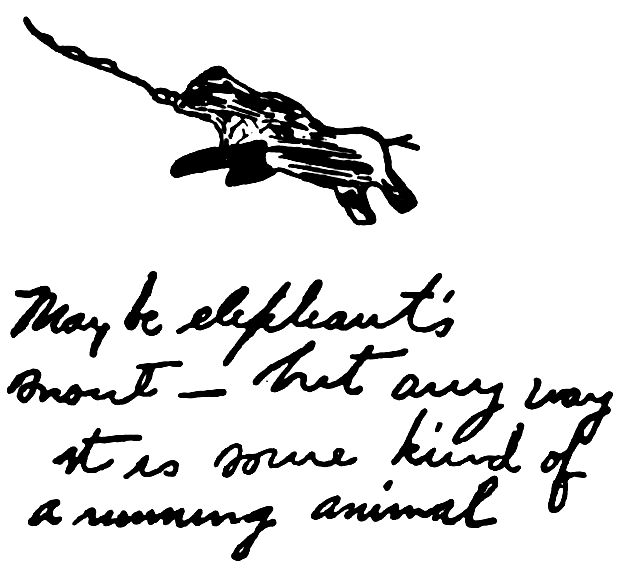 May be elephant's
snout – but any way
it is some kind of
a running animal